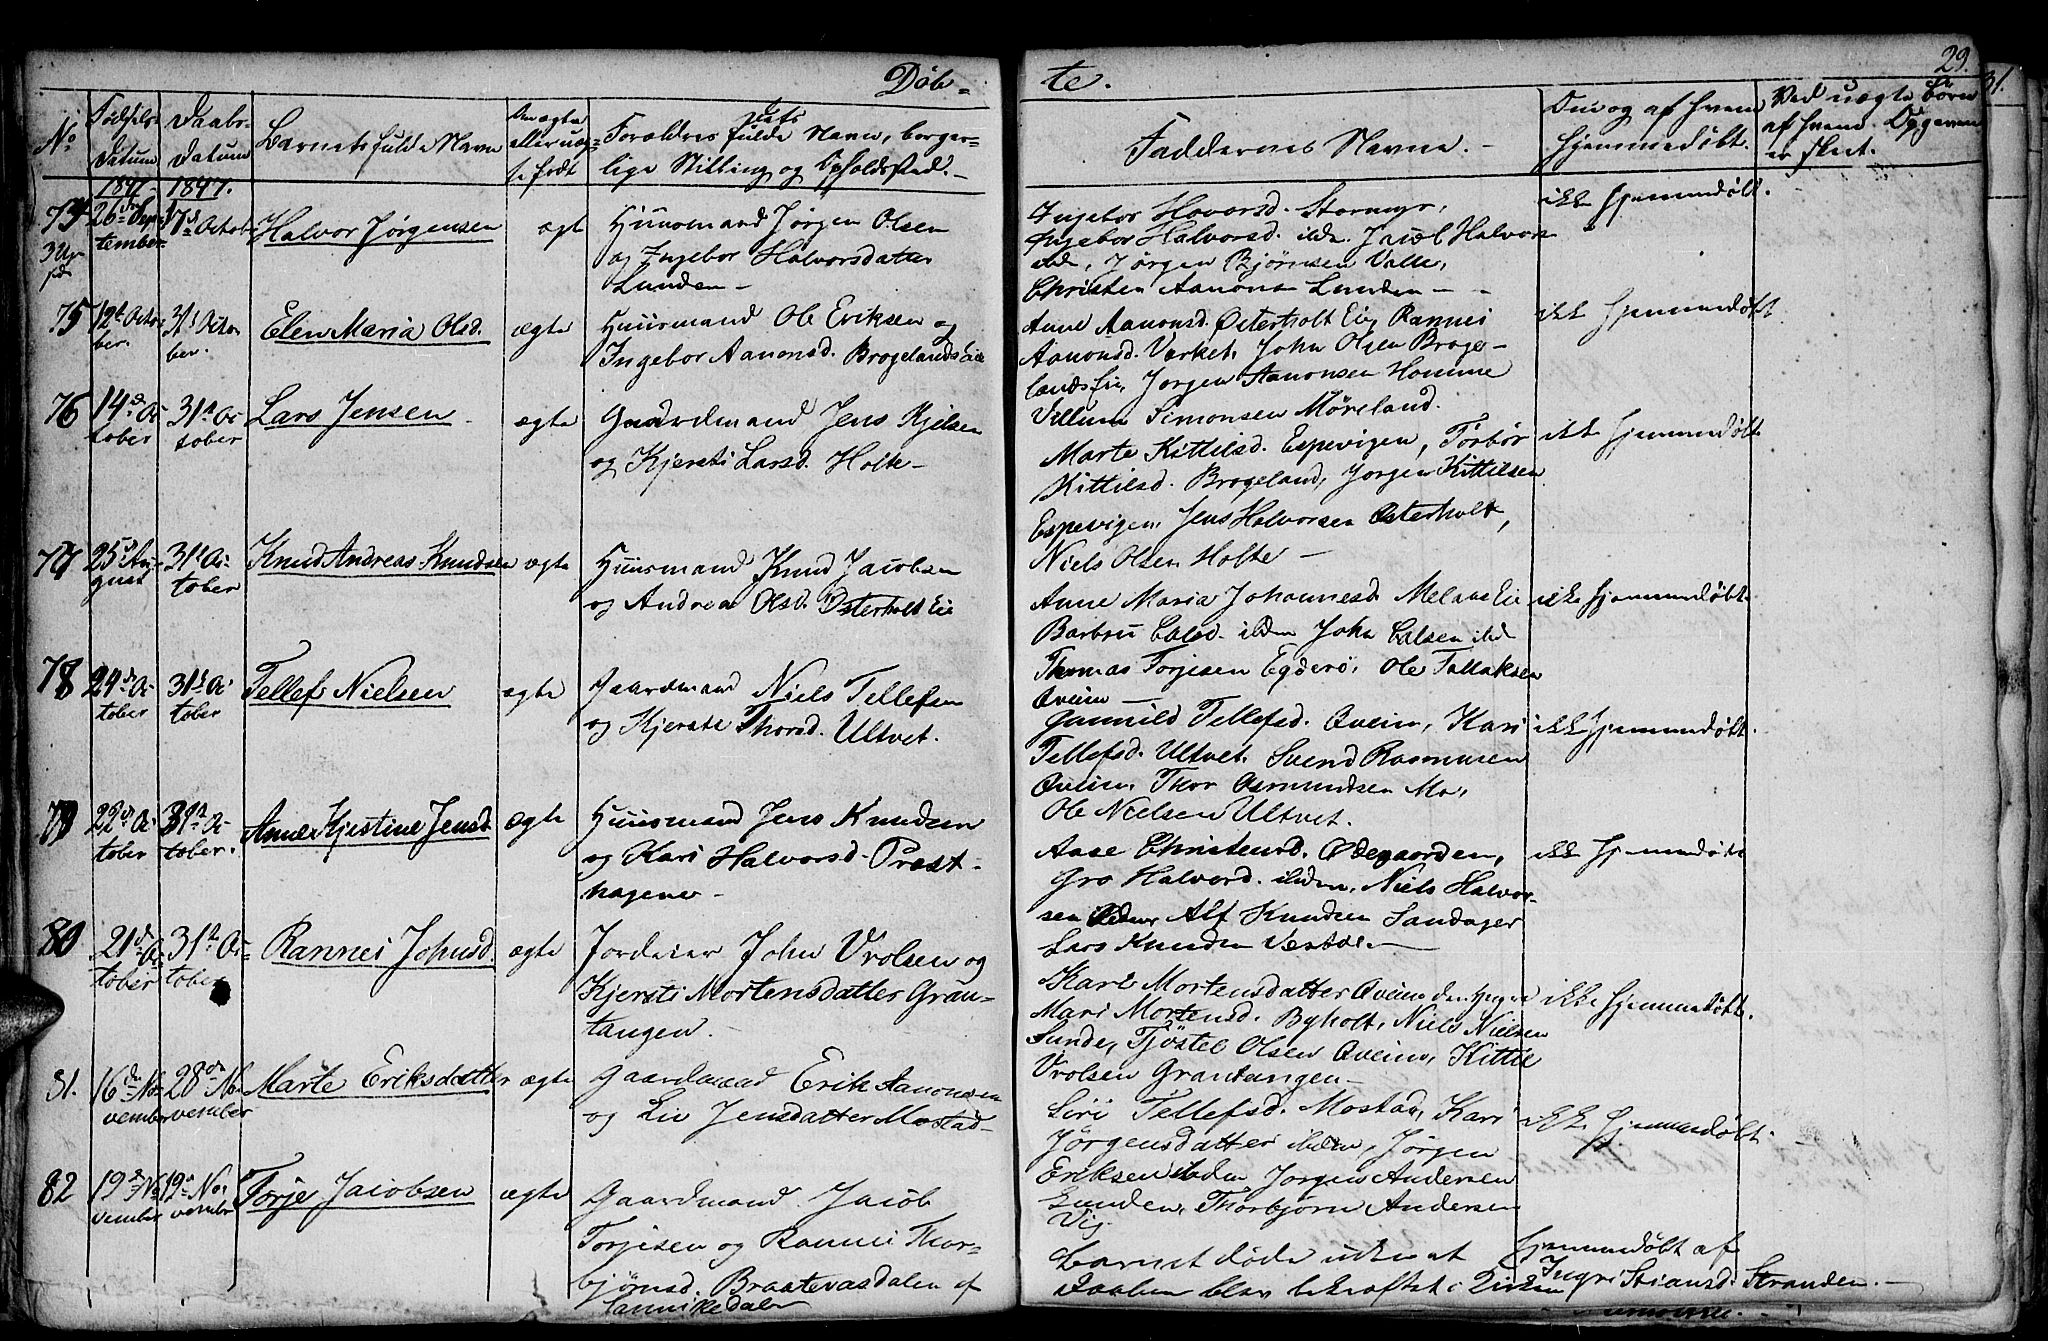 Døb-
te.
29.
31.
No
Fødsels-
Datum
Daabs-
Datum
Barnets fulde Navn
Om ægte
eller uæg-
te født
Forældres fulde Navn, borger-
lige Stilling og Opholdsted.-
Faddernes Navne.-
Om og af hvem
hjemmedøbt.
Ved uægte Børn
af hvem Opgaven
er skeet.
1847. 1847.
26de Sep-
tember
17de Octob
Halvor Jørgensen
ægt
Huusmand Jørgen Olsen
og Ingebor Halvorsdatter
Lunden-
Ingebor Havorsd. Stormyr,
Ingebor Halvorsd. ibdn. Jacob Halvors
ibdn, Jørgen Bjørnsen Valle,
Christen Aanons Lunden-
ikke hjemmedøbt.
75
12te Octo-
ber.
31te Octo-
ber.
Elen Maria Olsd.
ægte
Huusmand Ole Eriksen og
Ingebor Aanonsd. Brogelands Eie
Anne Aanonsd. Østerholt Eie, Rannei
Aanonsd. Værket, John Olsen Broge-
lands Eie, Jørgen Aanonsen Homme
Villum Simonsen Møreland.
ikke hjemmedøbt.
76
14de Oc-
tober
31te Oc-
tober
Lars Jensen
ægte
Gaardmand Jens Kjelsen
og Kjersti Larsd. Holte-
Marte Kittilsd. Espevigen, Torbør
Kittilsd. Brogeland, Jørgen Kittilsen
Espevigen, Jens Halvorsen Østerholt,
Niels Olsen Holte-
ikke hjemmedøbt
77
25de Au-
gust
31te Oc-
tober
Knud Andreas Knudsen
ægte
Huusmand Knud Jacobsen
og Andrea Olsd. Østerholt Eie
Anne Maria Johannesd. Melaas Eie
Barbru Calsd. ibdn John Calsen ibd
Thomas Torjesen Egderø, Ole Tallaksen
Qveim-
ikke hjemmedøbt
78
24de Oc-
tober
31te Oc
tober
Tellef Nielsen
ægte
Gaardmand Niels Tellefsen
og Kjerste Thorsd. Ultvet.
Gunnild Tellefsd. Qveim, Kari
Tellefsd. Ultvet, Svend Rasmusen
Qveim, Thor Osmundsen Mo,
Ole Nielsen Ultvet.
ikke hjemmedøbt.
79
22de Oc-
tober
31te Oc-
tober.
Anne Kjestine Jensd
ægte
Huusmand Jens Knudsen
og Kari Halvorsd. Præst-
hagene-
Aase Christensd. Ødegaarden,
Gro Halvord. ibiden, Niels Halvor-
sen ibden Alf Knudsen Sandager
Lars Knudsen Vestøl-
ikke hjemmedøbt
80
21de Oc-
tober
31te Oc-
tober
Rannei Johnsd.
ægte
Jordeier John Vrolsen og
Kjersti Mortensdatter Gran-
tangen-
Kari Mortensdatter Qveim den yngre
Mari Mortensd. Byholt, Niels Nielsen
Sunde, Tjøstel Olsen Qveim, Kittil
Vrolsen Grantangen-
ikke hjemmedøbt.
81.
16de No-
vember
28de No-
vember
Marte Eriksdatter
ægte
Gaardmand Erik Aanonsen
og Liv Jensdatter Mostad-
Siri Tellefsd. Mostad, Kari
Jørgensdatter ibden, Jørgen
Eriksen ibden, Jørgen Andersen
Lunden, Thorbjørn Andersen
Vig.
ikke hjemmedøbt.
82
19de No-
vember
19de No-
vember
Torje Jacobsen
ægte
Gaardmand Jacob
Torjesen og Rannei Thor-
bjørnsd. Braatevasdalen af
Cannikedalen
Barnet døde uden at
Daaben blev bekræftet i Kirken
hjemmedøbt af
Ingri Stiansd. Stranden.-